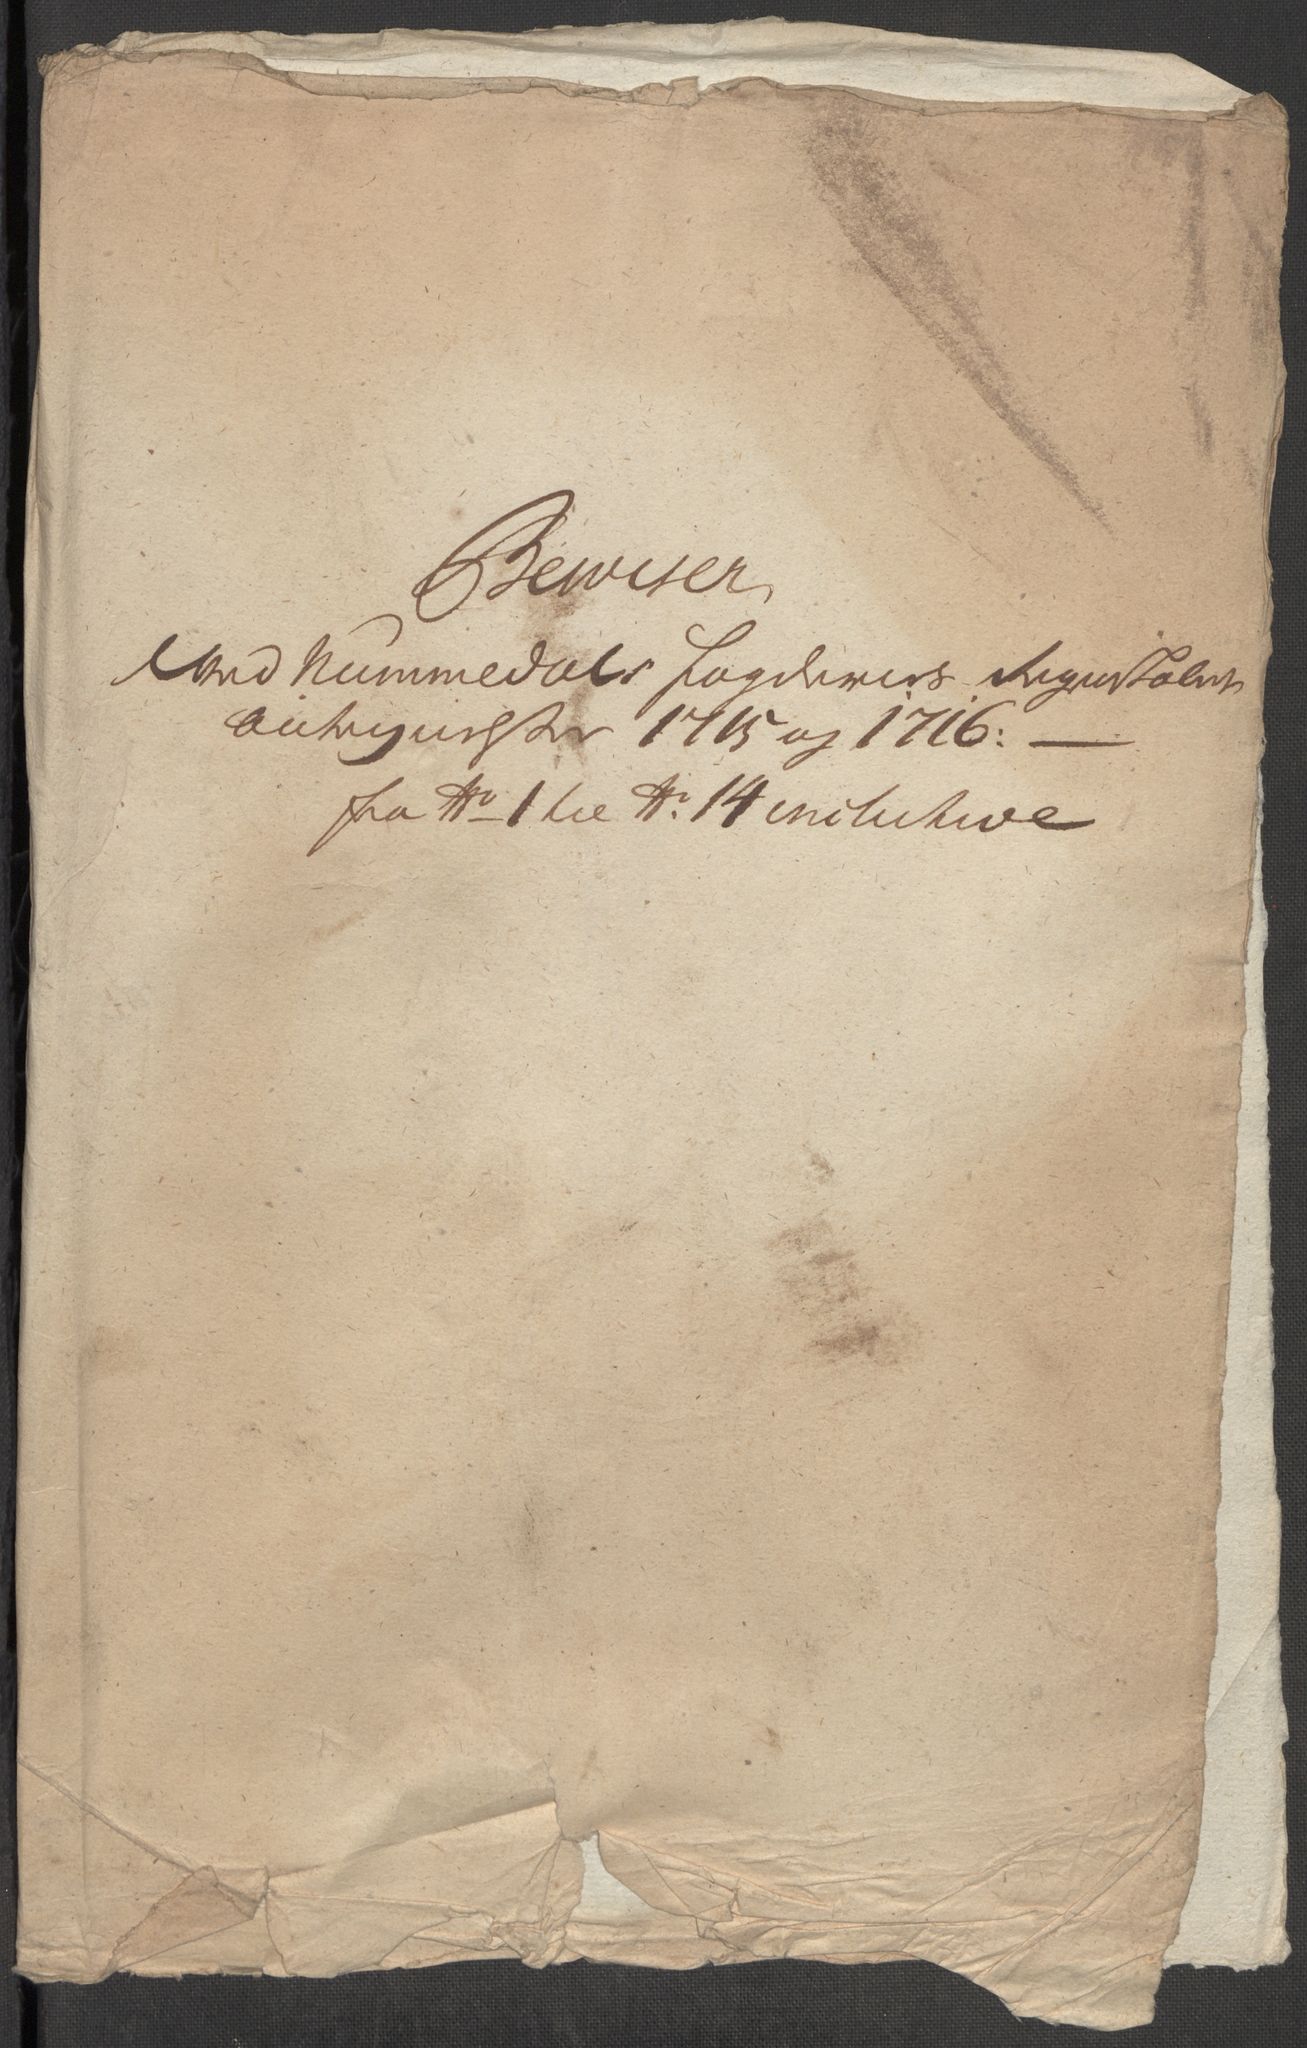 Bewiser
Wed Nummedals fogderies Regenskaber
fra No 1 til No 14 inclusive
1715 og 1716: —